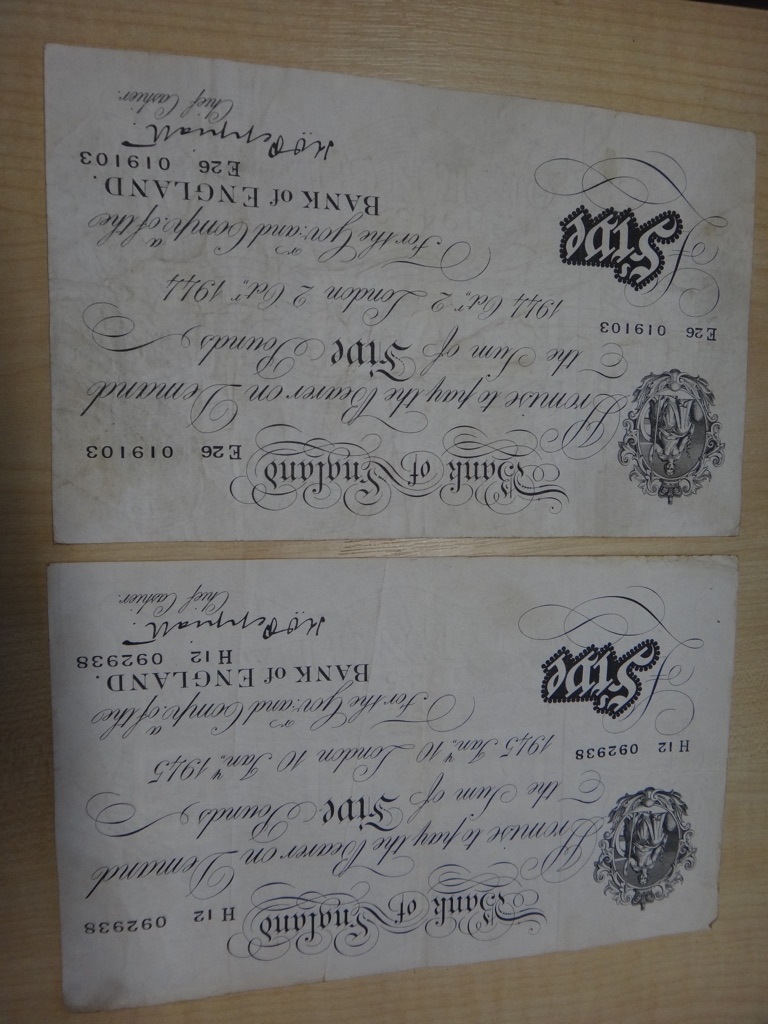 Bank of England H12 092938
Promise to pay the Bearer on Demand
the Sum of Five Pounds
H12 092938
1945 Jan.y 10 London 10 Jan.y 1945
For the Gov:r and Comp:a of the
Five
BANK of ENGLAND.
H12 092938
K O Peppiatt
Chief Cashier.
Bank of England E26 019103
Promise to pay the Bearer on Demand
the Sum of Five Pounds
E26 019103
1944 Oct.r 2 London 2 Oct.r 1944
For the Gov:r and Comp:a of the
Five
BANK of ENGLAND.
E26 019103
K O Peppiatt
Chief Cashier.